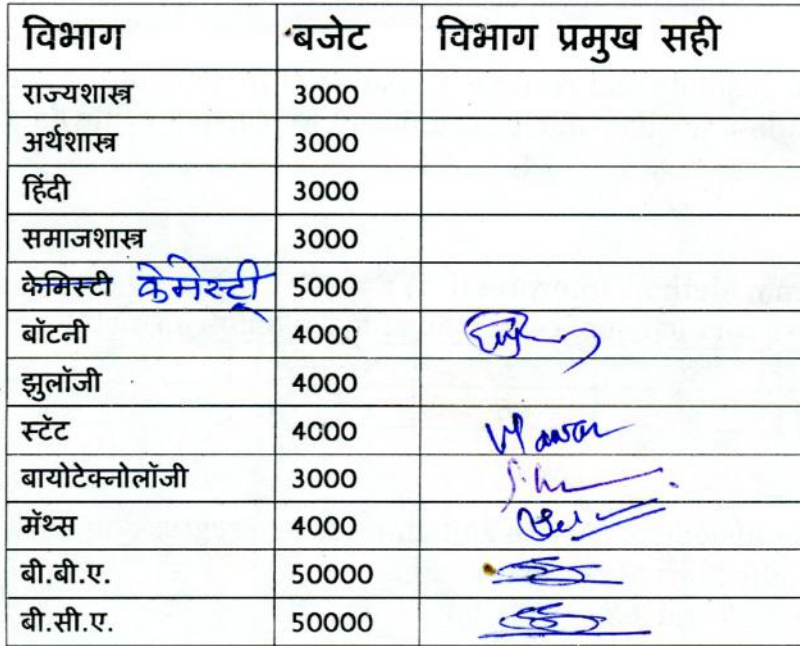 विभाग बजेट विभाग प्रमुख सही
राज्यशास्त्र 3000
अर्थशास्त्र 3000
हिंदी 3000
समाजशास्त्र 3000
केमिस्टी केमेस्ट्री 5000
बॉटनी 4000
झुलॉजी 4000
स्टॅट 4000
बायोटेक्नोलॉजी 3000
मॅथ्स 4000
बी.बी.ए. 50000
बी.सी.ए. 50000